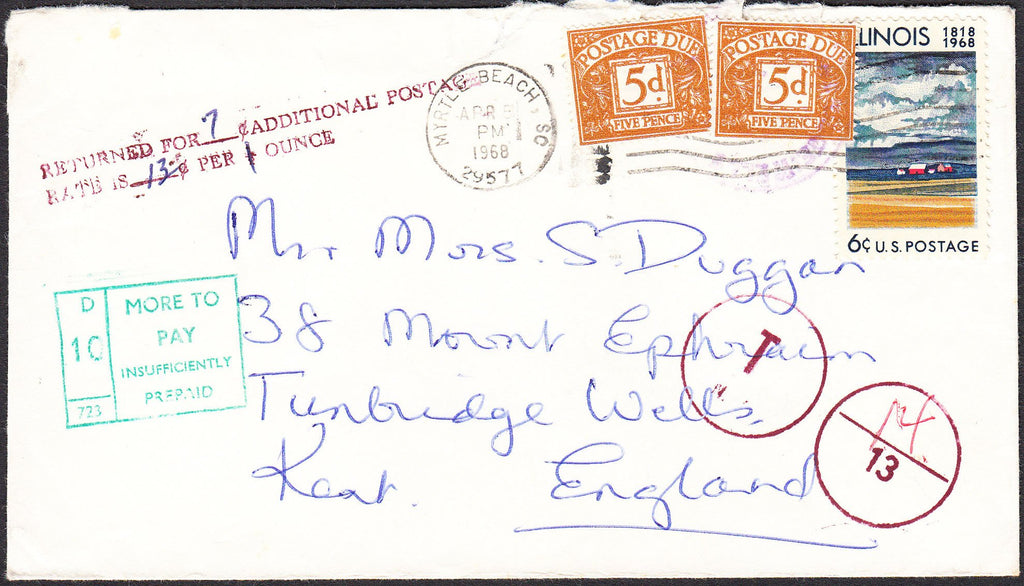 RETURNED FOR 7 ¢ ADDITIONAL POSTAG
RATE IS 13 ¢ PER 1 OUNCE
MYRTLE BEACH, SO
APR
PM
1968
29577
POSTAGE DUE
5d.
FIVE PENCE
POSTAGE DUE
5d.
FIVE PENCE
LLINOIS 1818
1968
6¢ U.S. POSTAGE
Mr Mors. S. Duggan
38 Mount Ephraim
Tunbridge Wells,
Kent. England
D
10
723
MORE TO
PAY
INSUFFICIENTLY
PREPAID
T
14.
13